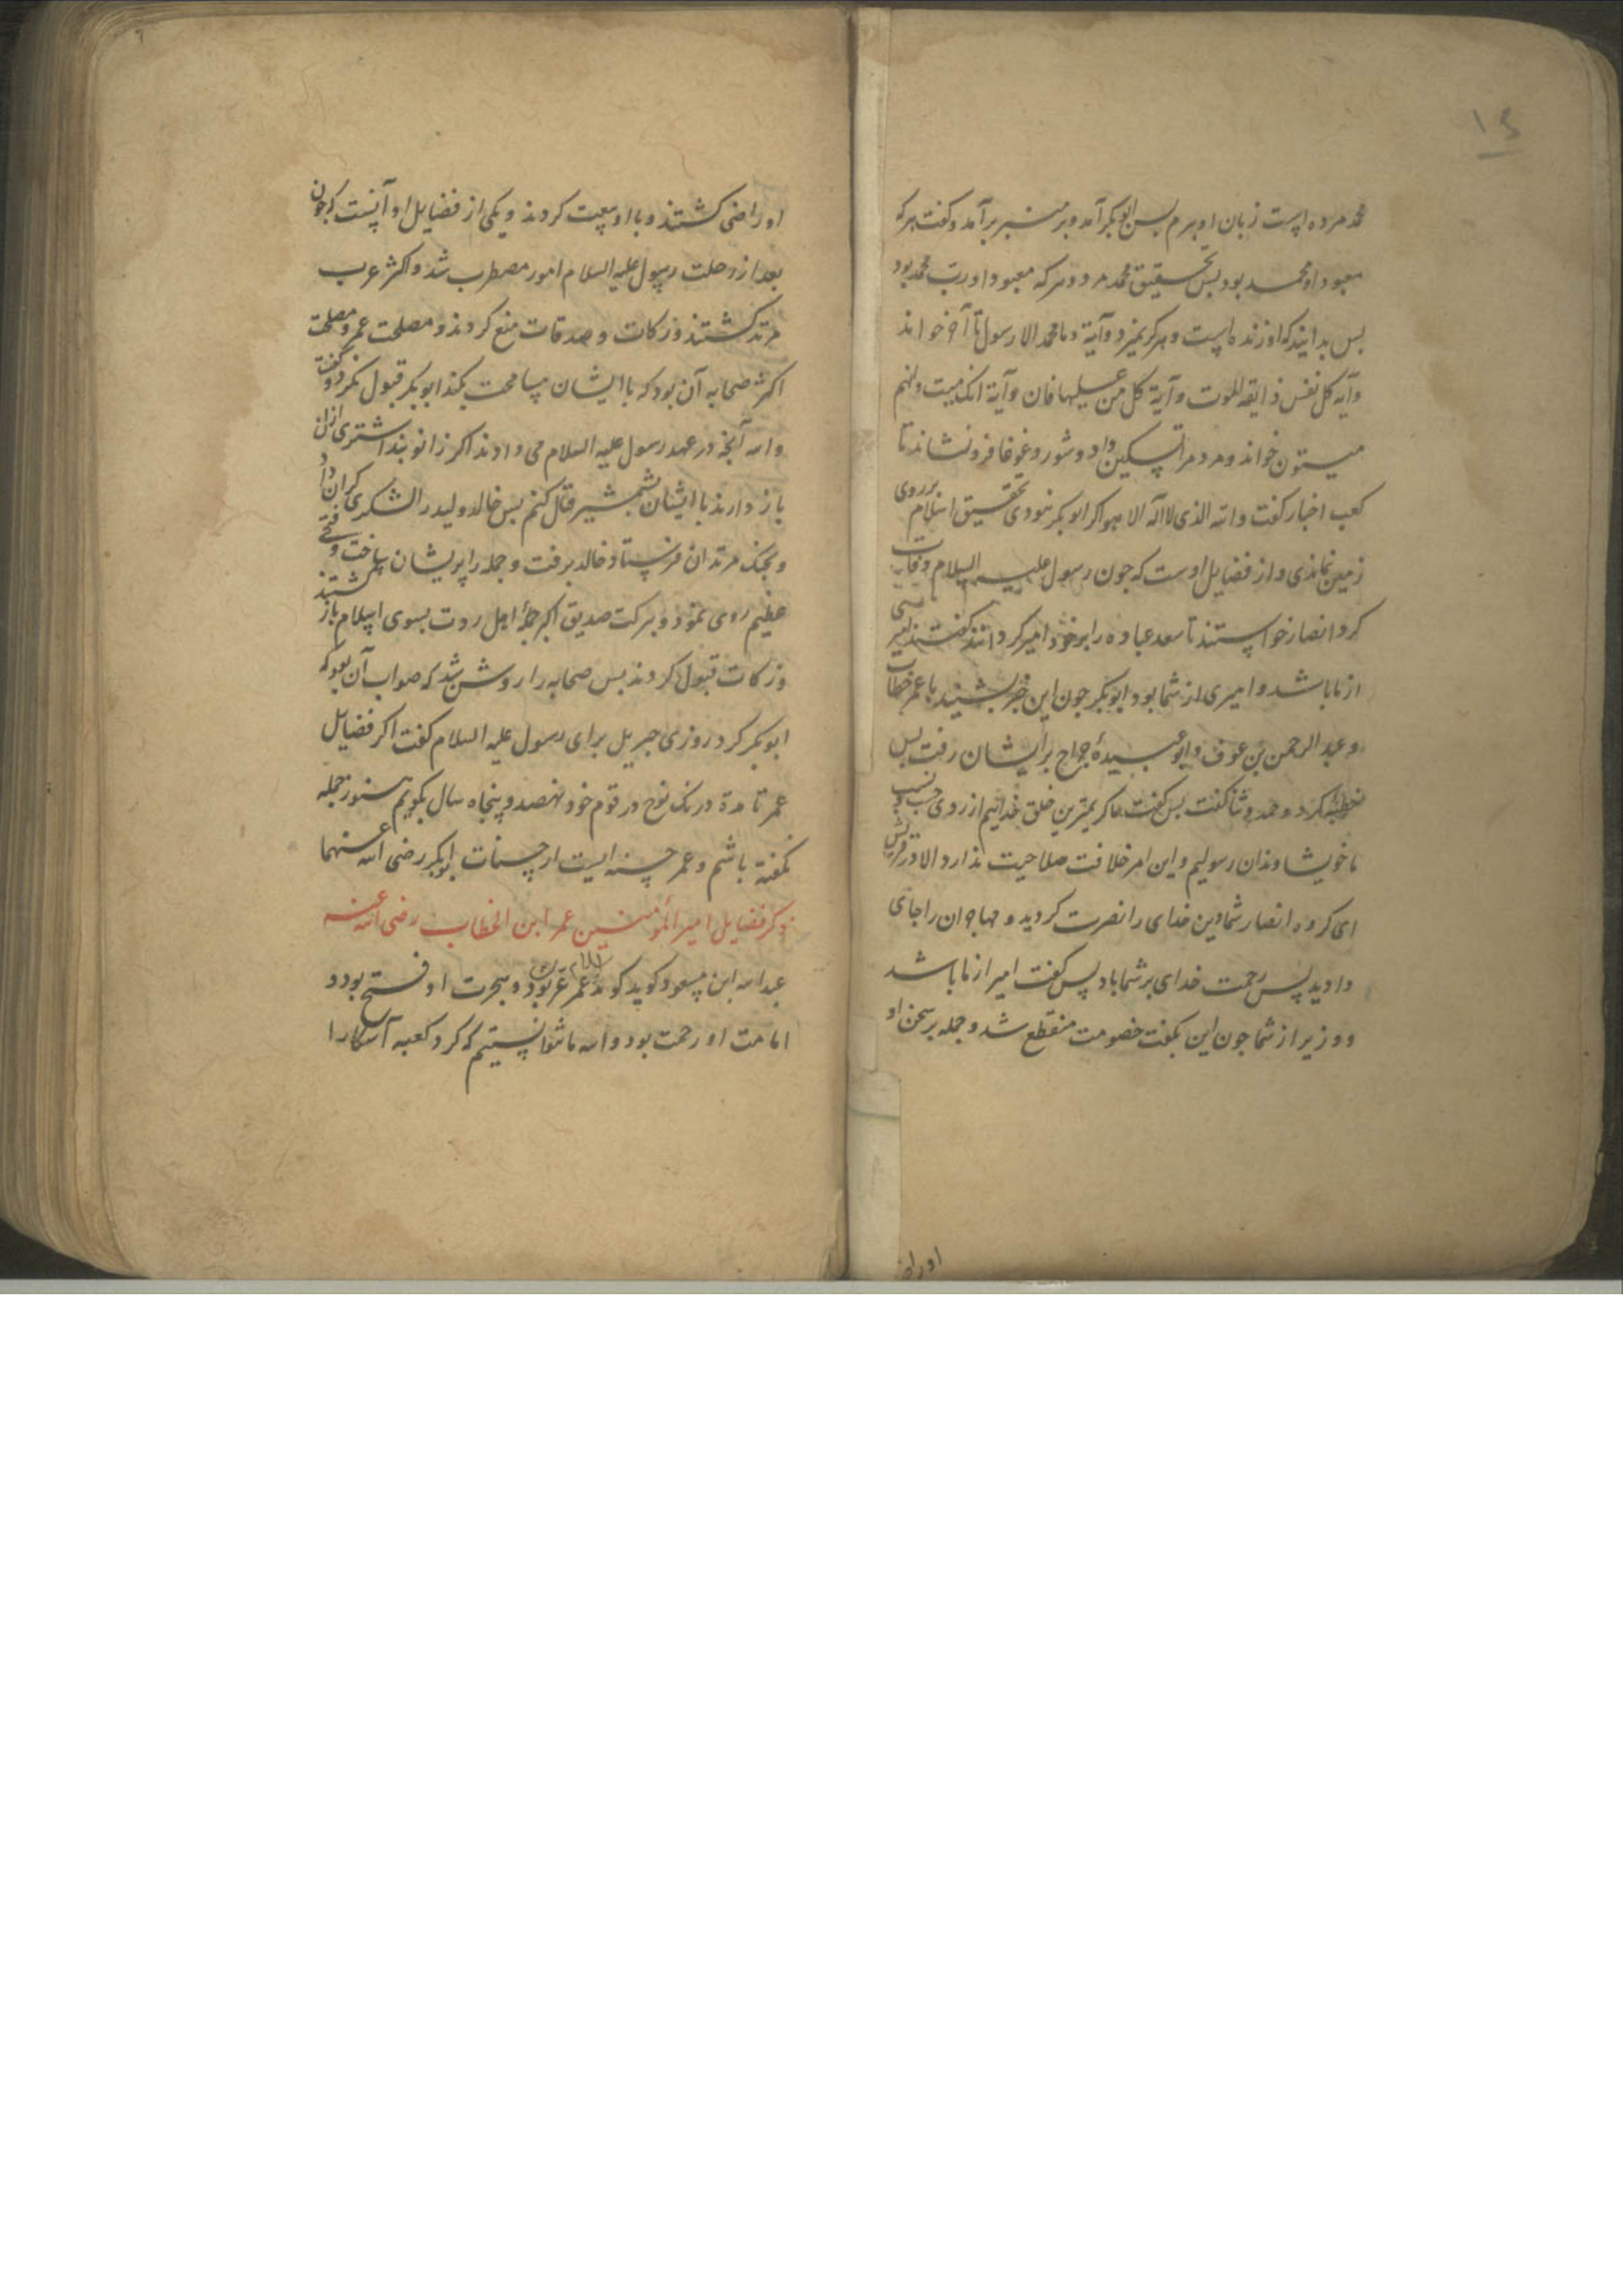 ۱۴
محمد مرده است زبان او ببرم پس ابوبکر آمد و بر منبر برآمد و کفت هر که
معبود او محمد بود بس بتحقیق محمد مرد و هر که معبود او رب محمد بود
بس بدانید که او زنده است و هرکز نمیرد و آیة و ما محمد الا رسول تا آخر خواند
و آیه کل نفس ذایقه الموت و آیة کل من علیها فان و آیة انک میت و انهم
میتون خواند و مردم را تسکین داد و شور و غوغا فرو نشاند تا
کعب اخبار کفت والله الذی لا اله الا هو اکر ابوبکر نبودی بتحقیق اسلام بر روی
زمین نماندی و از فضایل اوست که جون رسول علیه السلام وفات
کرد انصار خواستند تا سعد عباده را بر خود امیر کردانند کفتند امیری
از ما باشد و امیری از شما بود ابوبکر جون این خبر بشنید با عمر خطاب
و عبد الرحمن بن عوف و ابو عبیدهٔ جراح بر ایشان رفت بس
خطبه کرد و حمد و ثنا کفت بس کفت ما کریمترین خلق خدائیم از روی حسب و نسب
ما خویشاوندان رسولیم و این امر خلافت صلاحیت ندارد الا در قریش
ای کروه انصار شما دین خدای را نصرت کردید و مهاجران را جای
دادید پس رحمت خدای بر شما باد پس کفت امیر از ما باشد
و وزیر از شما جون این بکفت خصومت منقطع شد و جمله بر سخن او
او راضی
او راضی کشتند و با او بیعت کردند و یکی از فضایل او آنست که جون
بعد از رحلت رسول علیه السلام امور مضطرب شد و اکثر عرب
مرتد کشتند و زکات و صدقات منع کردند و مصلحت عمر و مصلحت
اکثر صحابه آن بود که با ایشان مسامحت کند ابوبکر قبول نکرد و کفت
والله آنجه در عهد رسول علیه السلام می دادند اکر زانو بند اشتری از آن
باز دارند با ایشان بشمشیر قتال کنم بس خالد ولید را لشکری کران داد
و بجنک مرتدان فرستاد خالد برفت و جمله را پریشان ساخت و فتح
عظیم روی نمود و ببرکت صدیق اکبر جملهٔ اهل ردت بسوی اسلام باز کشتند
و زکات قبول کردند بس صحابه را روشن شد که صواب آن بود که
ابوبکر کرد روزی جبریل برای رسول علیه السلام کفت اکر فضایل
عمر تا مدة درنک نوح در قوم خود نهصد و پنجاه سال بکویم هنوز جمله
نکفته باشم و عمر حسنه ایست از حسنات ابوبکر رضی الله عنهما
ذکر فضایل امیر المؤمنین عمر ابن الخطاب رضی الله عنه
عبد الله ابن مسعود کوید کوید اسلام عمر عز بود و هجرت او فتح بود و
امامت او رحمت بود و الله ما نتوانستیم که کرد کعبه آشکارا